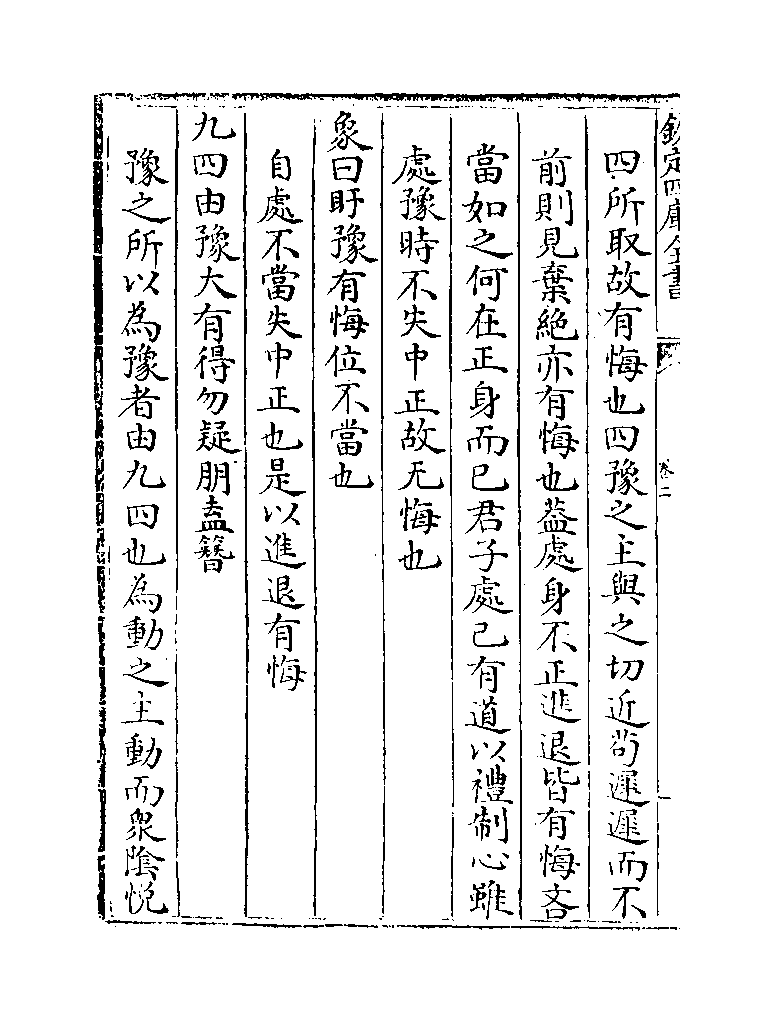 欽定四庫全書
卷二
四所取故有悔也四豫之主與之切近苟遲遲而不
前則見棄絶亦有悔也葢處身不正進退皆有悔吝
當如之何在正身而已君子處己有道以禮制心雖
處豫時不失中正故无悔也
象曰盱豫有悔位不當也
自處不當失中正也是以進退有悔
九四由豫大有得勿疑朋盍簪
豫之所以為豫者由九四也為動之主動而衆陰悅